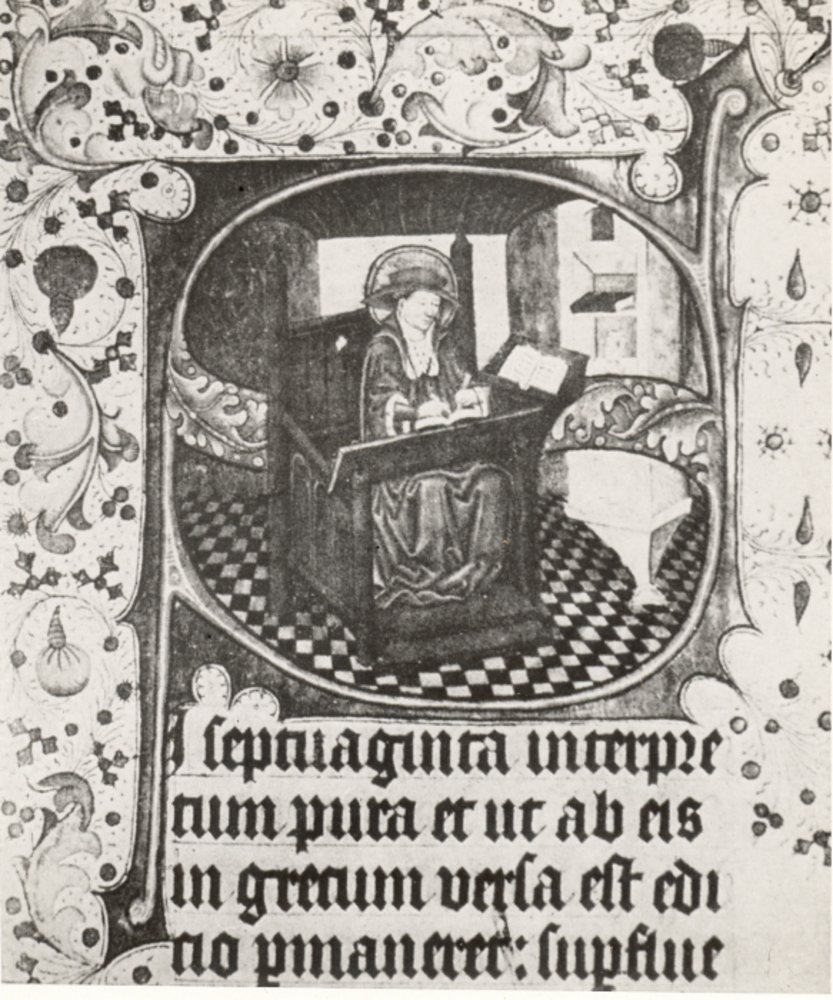 SI septuaginta interpre
tum pura et ut ab eis
in grecum versa est edi
tio pmaneret: supflue